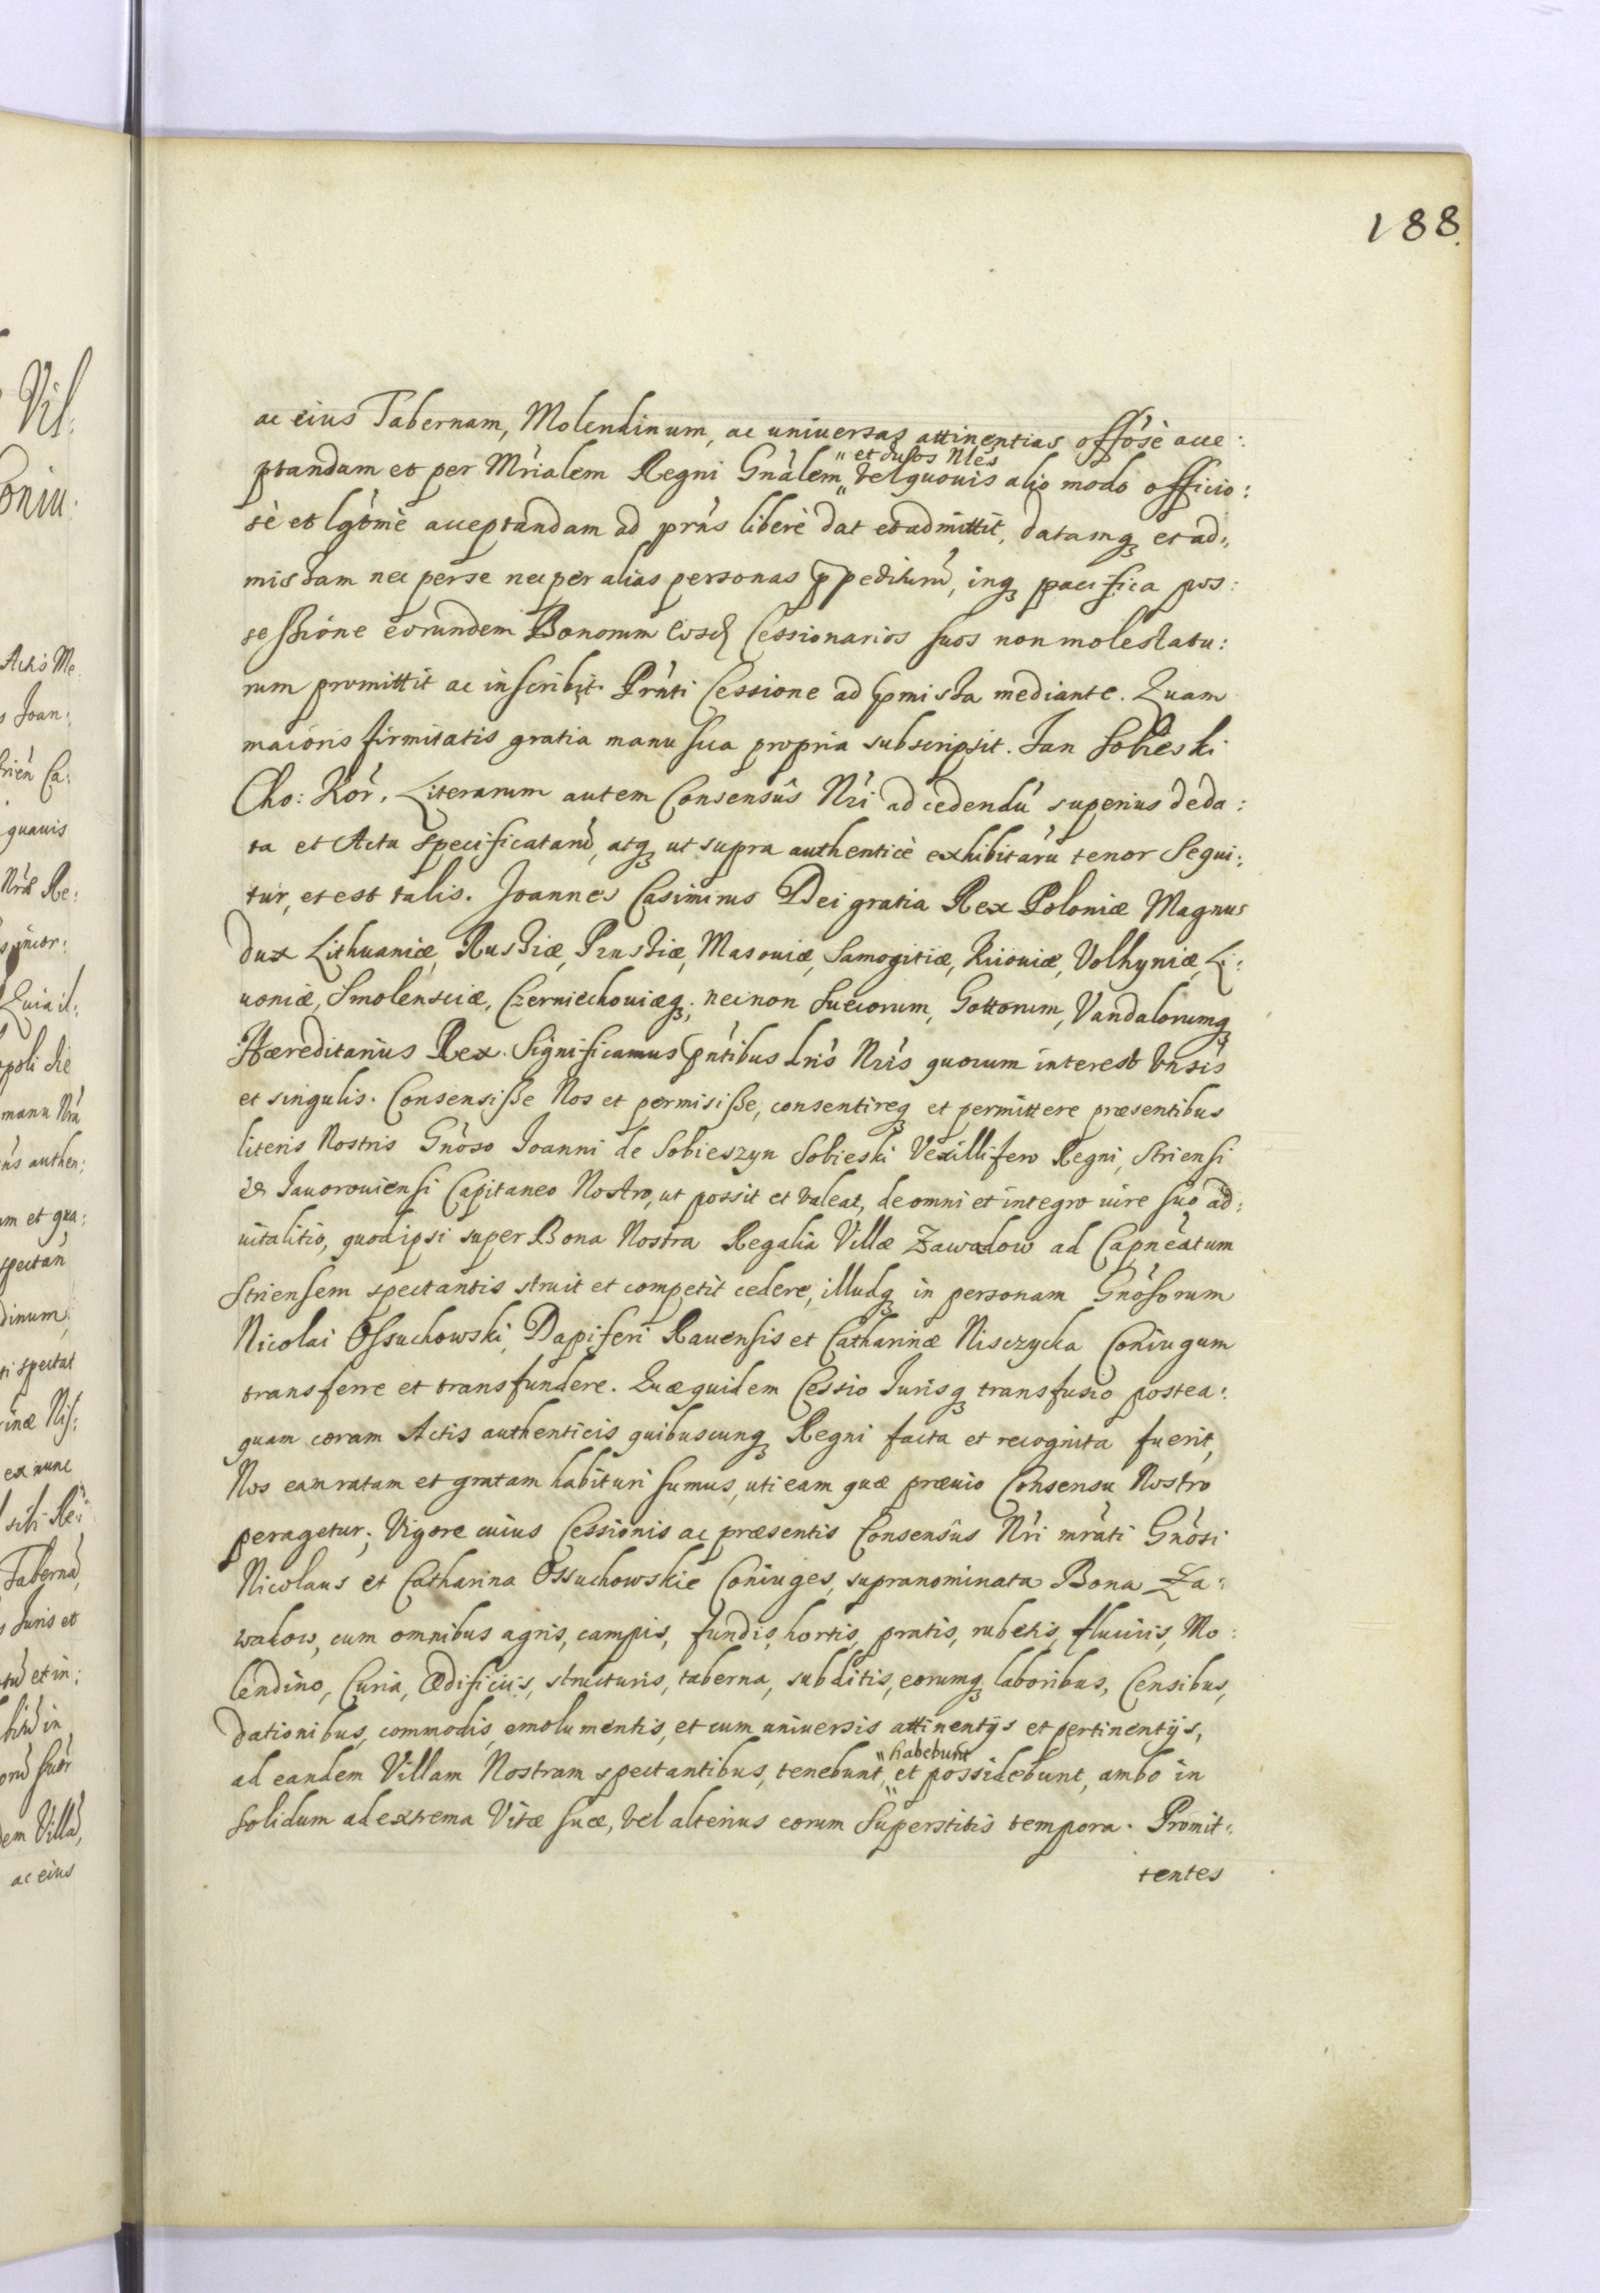 188.
ac eius Tabernam, Molendinum, ac universas attinentias offósè acce:
ptandam et per Mrialem Regni Gnàlem „ et dulos Nles „ vel quovis alio modo officio:
sè et lgtmè acceptandam ad prńs liberè dat et admittit, datamq; et ad„
missam nec per se nec per alias personas ppediturū, inq; pacifica pos:
sessione eorundem Bonorum eosd Cessionarios suos non molestatu:
rum promittit ac inscribit. Prńti Cessione ad pmissa mediante. Quam
maioris firmitatis gratia manu sua propria subscripsit. Jan Sobieski
Cho: Kor. Literarum autem Consensûs Nri ad cedendū superius de da:
ta et Actu specificatarū, atq; ut supra authenticè exhibitarū tenor sequi:
tur, et est talis. Joannes Casimirus Dei gratia Rex Poloniæ Magnus
dux Lithuaniæ, Russiæ, Prussiæ, Masouiæ, Samogitiæ, Kiiouiæ, Volhyniæ, Li:
uoniæ, Smolensciæ, Czerniechouiæq; necnon Suecorum, Gottorum, Vandalorumq;
Hæreditarius Rex. Significamus pntibus Lris Nris quorum interest vnsis
et singulis. Consensisse Nos et permisisse, consentireq; et permittere præsentibus
literis Nostris Gnoso Joanni de Sobieszyn Sobieski Vexillifero Regni, Striensi
et Jauorouiensi Capitaneo Nostro, ut possit et valeat, de omni et integro iure suo ad:
uitalitio, quod ipsi super Bona Nostra Regalia Villæ Zawadow ad Capneatum
Striensem spectantis struit et competit cedere, illudq; in personam Gnosorum
Nicolai Ossuchowski, Dapiferi Rauensis et Catharinæ Nisczycka Coniugum
transferre et transfundere. Quæ quidem Cessio Jurisq; transfusio postea:
quam coram Actis authenticis quibuscunq; Regni facta et recognita fuerit,
Nos eam ratam et gratam habituri sumus, uti eam quæ præuio Consensu Nostro
peragetur; Vigore cuius Cessionis ac præsentis Consensûs Nri mrati Gnosi
Nicolaus et Catharina Ossuchowskie Coniuges, supranominata Bona Za:
wadow, cum omnibus agris, campis, fundis, hortis, pratis, rubetis, fluuiis, Mo:
lendino, Curia, Ædificiis, structuris, taberna, subditis, eorumq; laboribus, Censibus,
dationibus, commodis, emolumentis, et cum universis attinentijs et pertinentijs,
ad eandem Villam Nostram spectantibus, tenebunt, „ habebunt „ et possidebunt, ambo in
solidum ad extrema Vitæ suæ, vel alterius eorum Superstitis tempora. Promit:
tentes